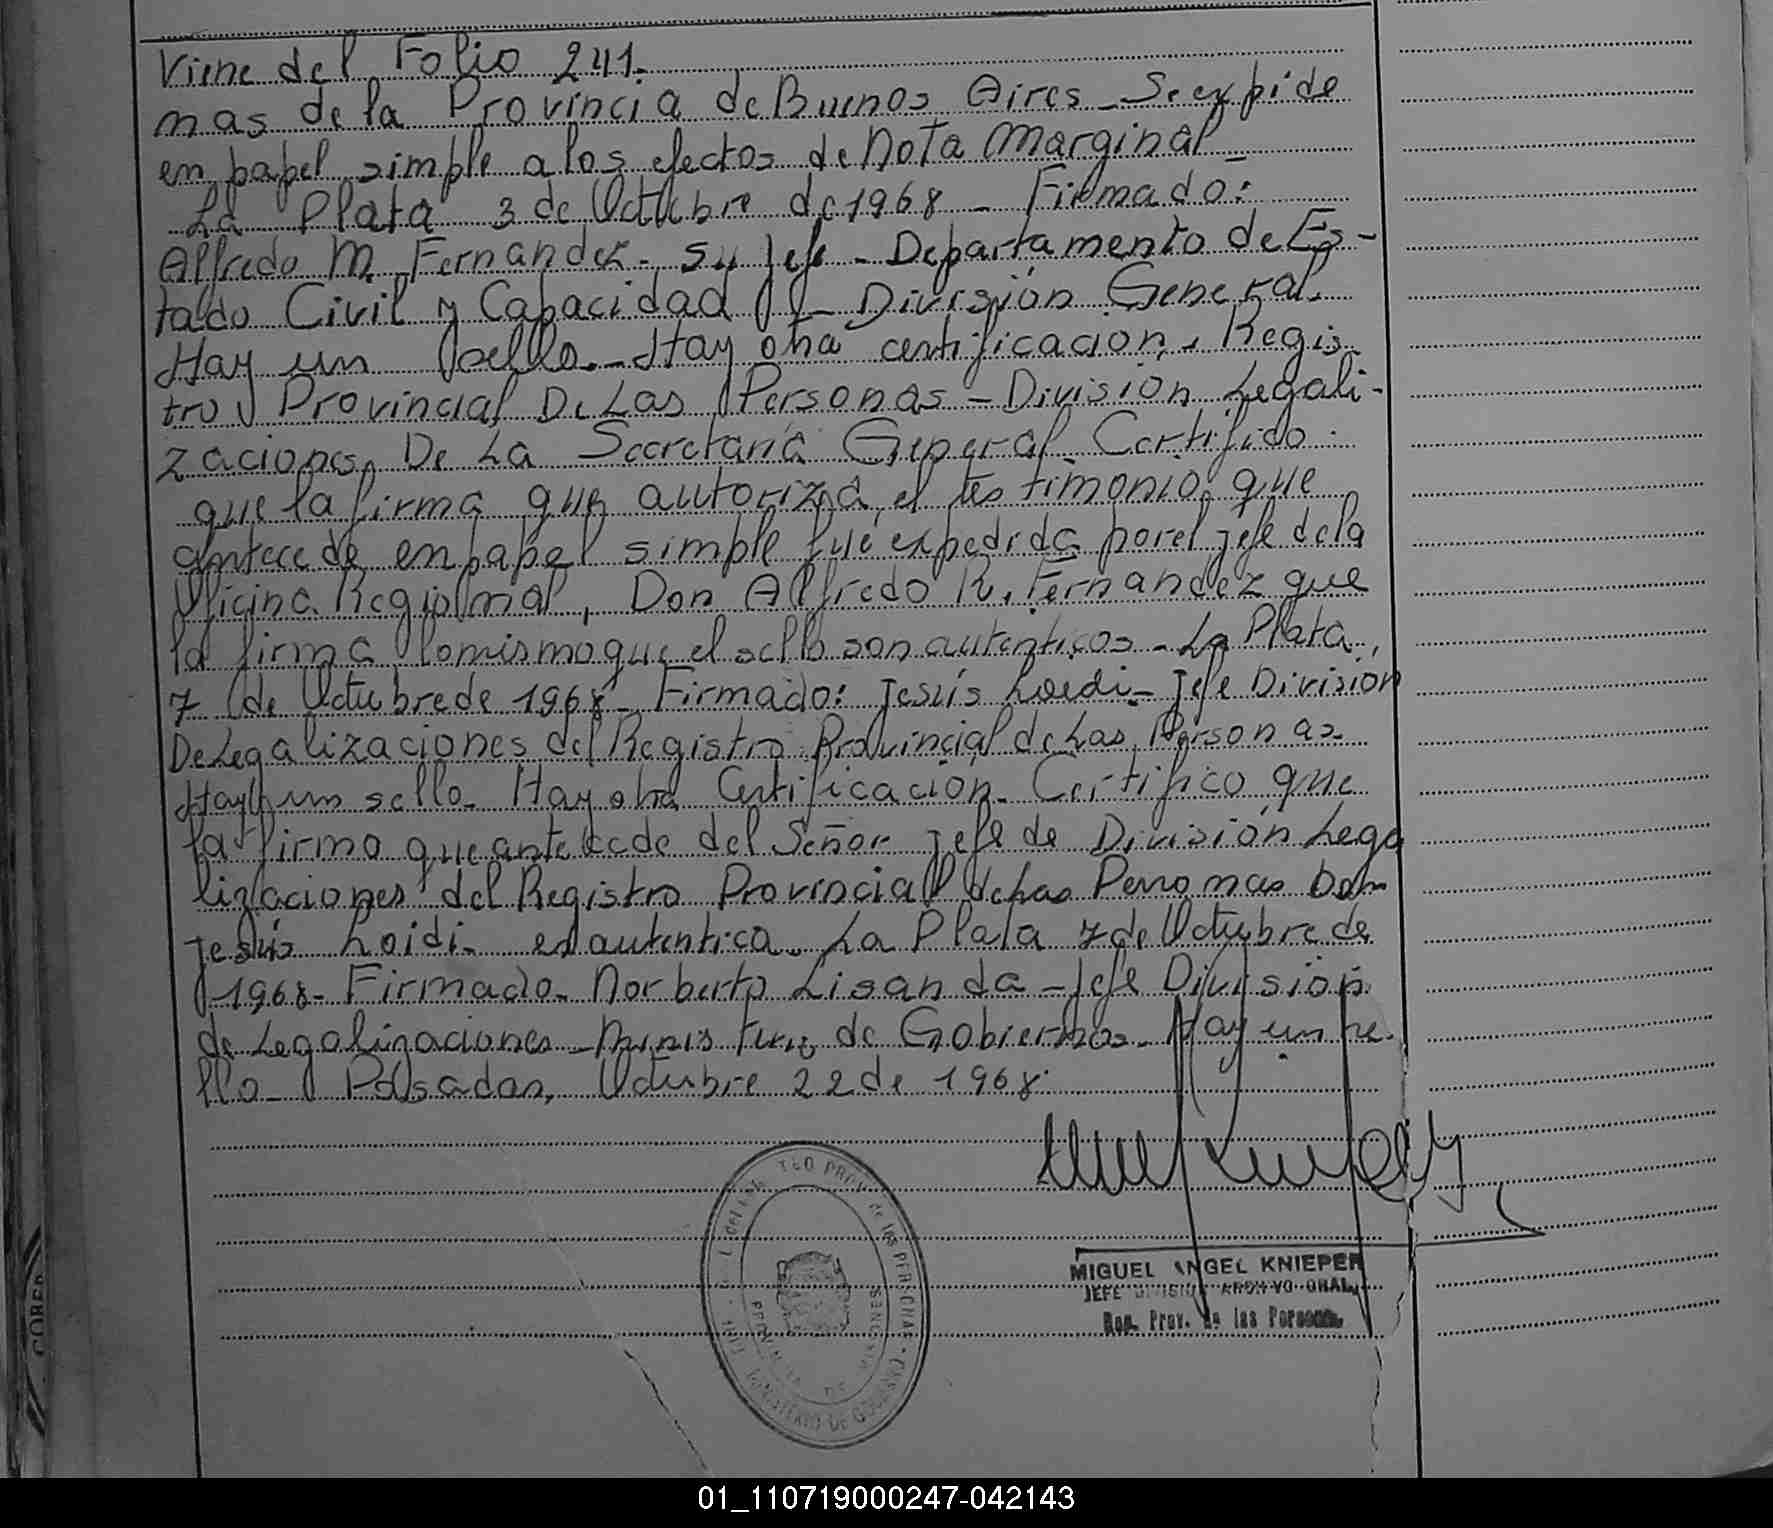 Viene del Folio 241.
mas de la Provincia de Buenos Aires - Se expide
en papel simple a los efectos de Nota Marginal -
La Plata 3 de Octubre de 1968 - Firmado:
Alfredo M. Fernandez - Su Jefe - Departamento de Es-
tado Civil y Capacidad - División General.
Hay un sello. - Hay otra certificacion. Regis-
tro Provincial De Las Personas - División Legali-
zaciones De La Secretaría General. Certifico:
que la firma que autoriza el testimonio que
antecede en papel simple fué expedida por el jefe de la
Oficina Regional, Don Alfredo R. Fernandez que
la firma lo mismo que el sello son autenticos - La Plata,
7 de Octubre de 1968 - Firmado: Jesús Loidi - Jefe División
De Legalizaciones del Registro Provincial de Las Personas -
Hay un sello - Hay otra Certificación - Certifico que
la firma que antecede del Señor Jefe de División Lega
lizaciones del Registro Provincial de Las Personas Don
Jesús Loidi - es autentica. La Plata 7 de Octubre de
1968 - Firmado - Norberto Lisanda - Jefe División
de Legalizaciones - Ministerio de Gobierno - Hay un se-
llo - Posadas, Octubre 22 de 1968.
MIGUEL ANGEL KNIEPER
JEFE DIVISION ARCHIVO GRAL.
Reg. Prov. de las Personas
PROV. de las PERSONAS
MINISTERIO DE GOBIERNO
PROVINCIA DE MISIONES
GOBER
01_110719000247-042143